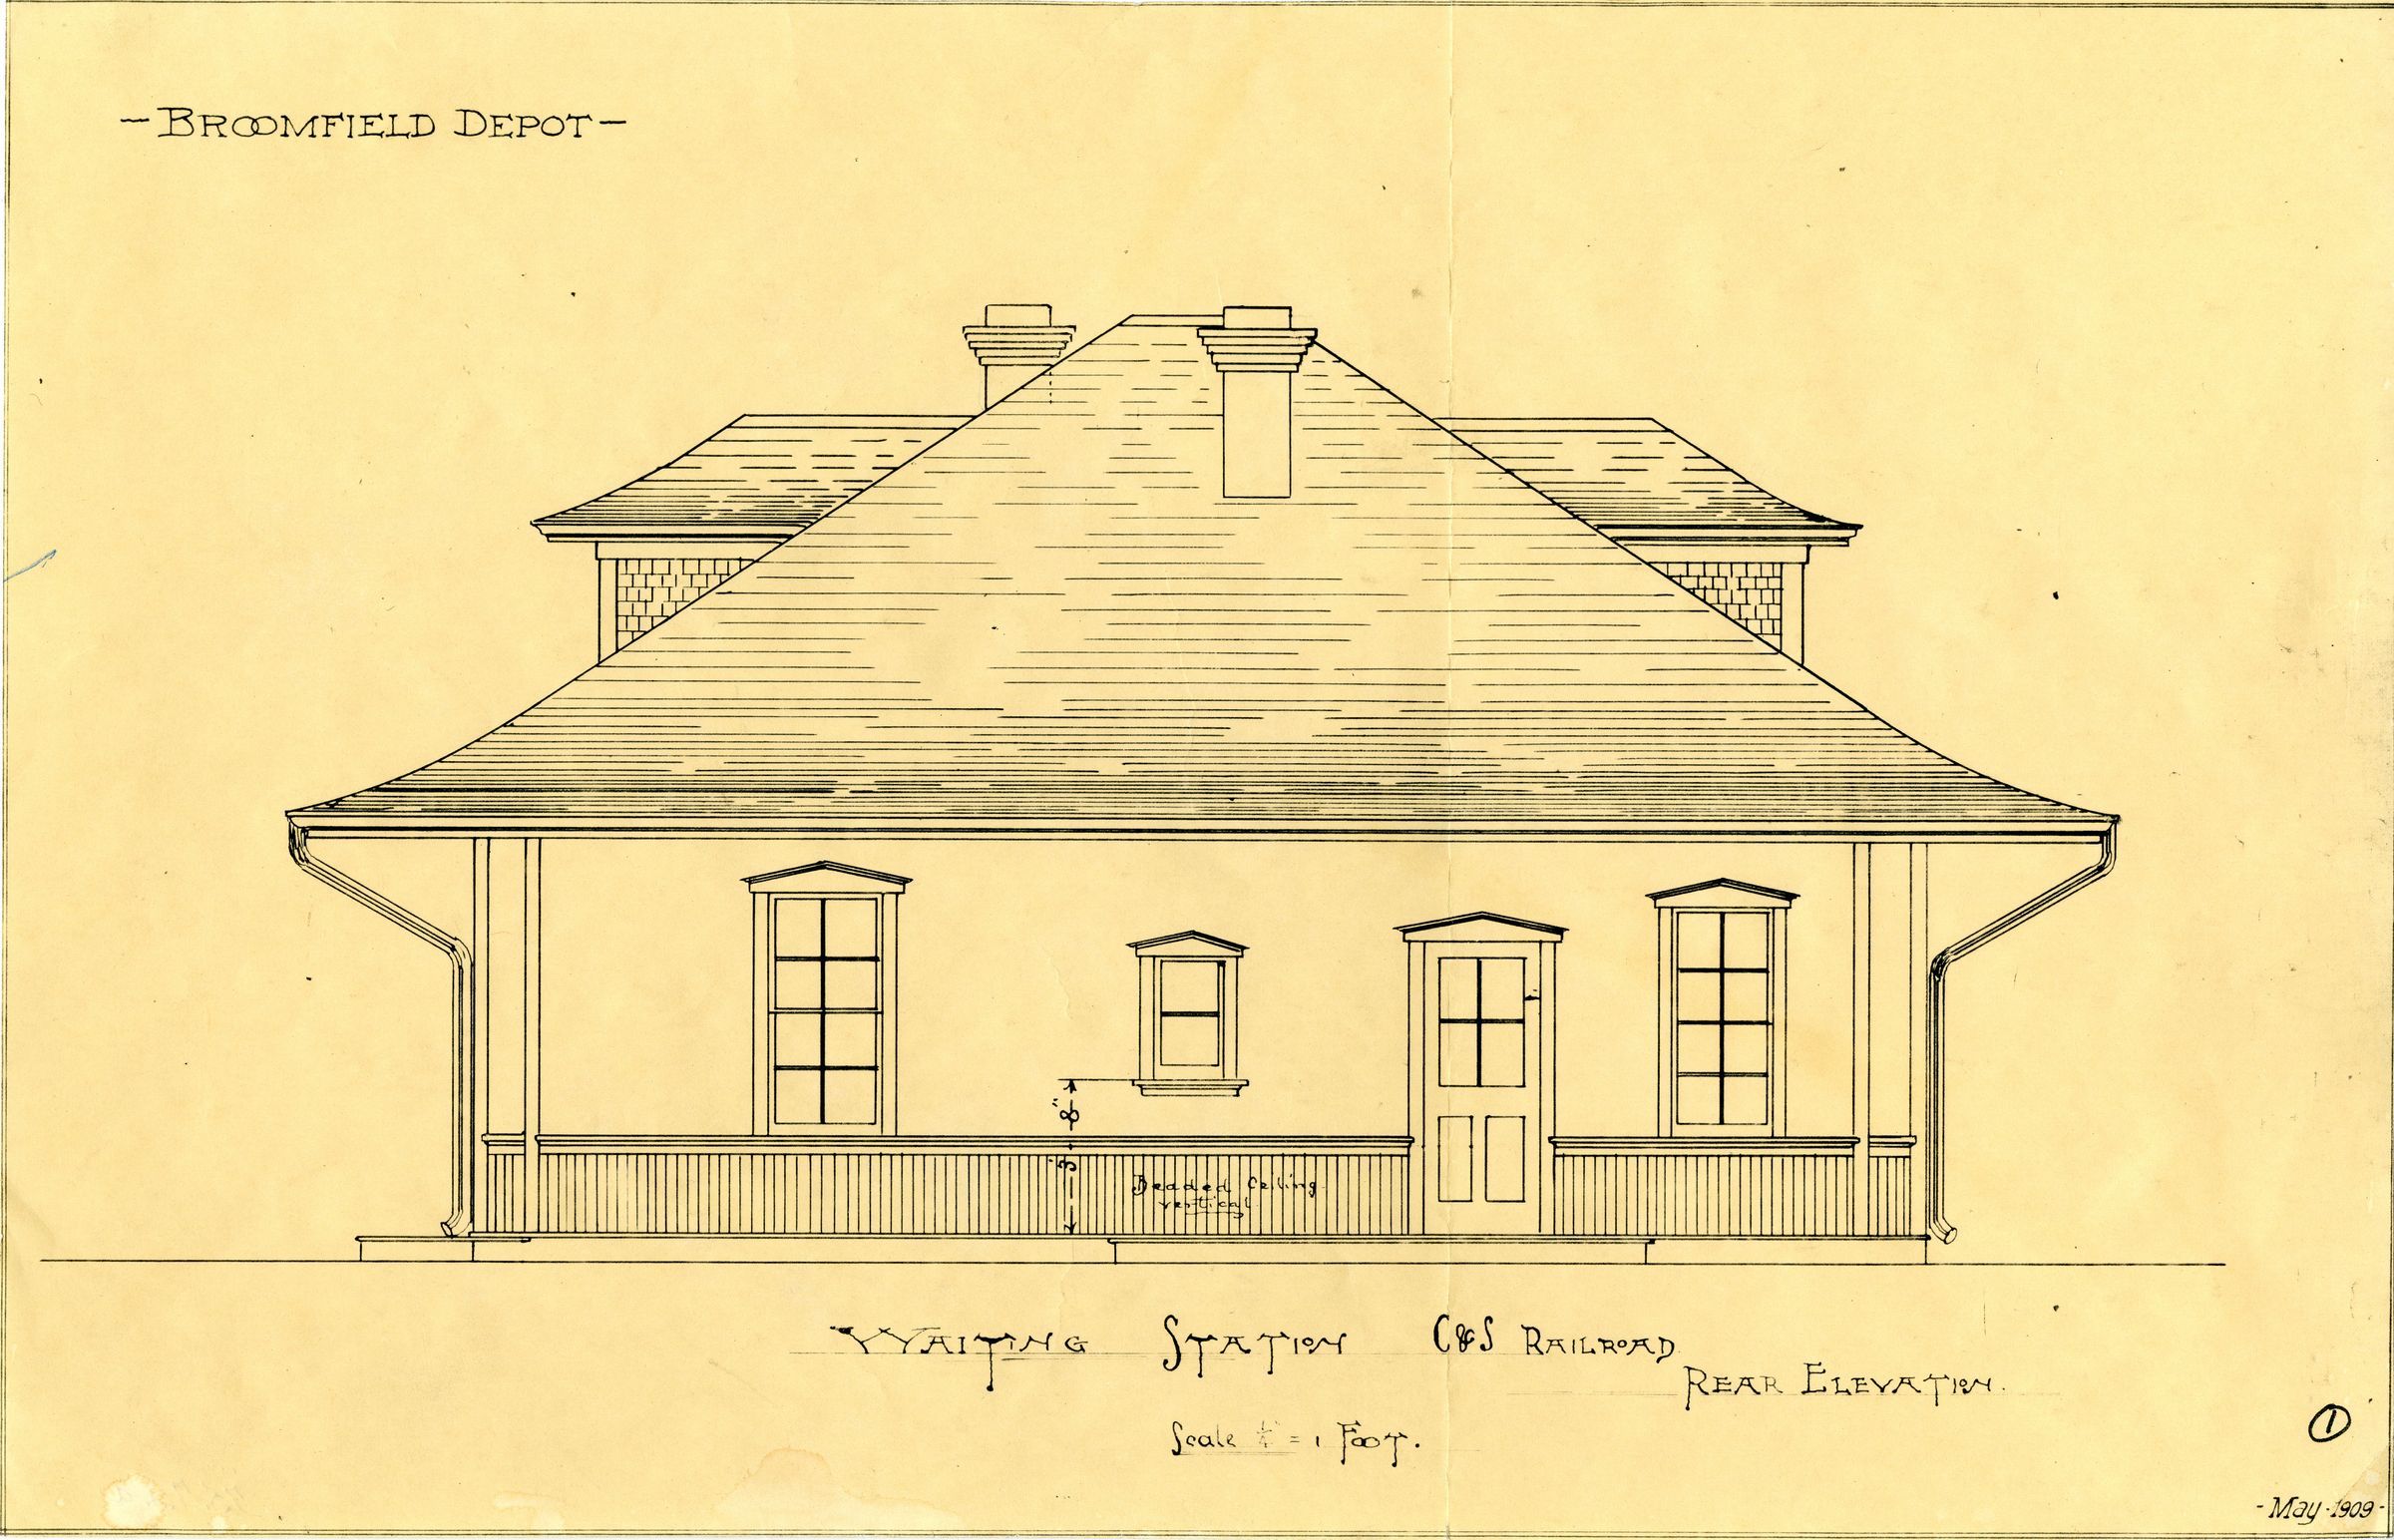 - BROOMFIELD DEPOT -
3' 8"
Beaded Ceiling
vertical
WAITING STATION C&S RAILROAD
REAR ELEVATION.
Scale ¼" = 1 FOOT.
1
- May - 1909 -